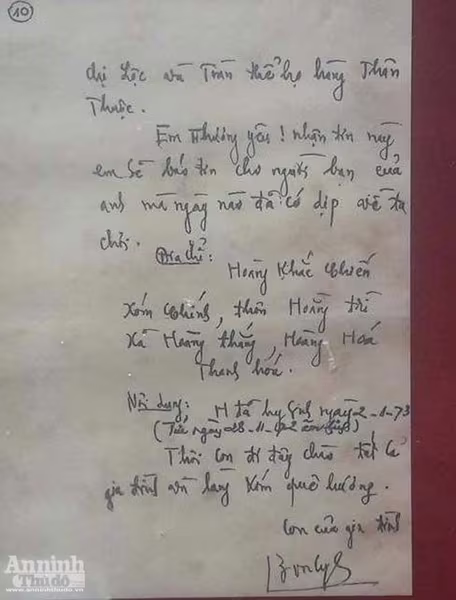 10
chị Lộc và Toàn thể họ hàng Thân
Thuộc.
Em thương yêu! nhận tin này
em sẽ báo tin cho người bạn của
anh mà ngày nào đã có dịp về ta
chơi.
Địa chỉ:
Hoàng Khắc Chiến
Xóm Chính, thôn Hoằng trì
Xã Hoằng thắng, Hoằng Hoá
Thanh hóa.
Nội dung: H đã hy sinh ngày 2-1-73
(Tức ngày 28-11-72 âm lịch)
Thôi con đi đây chào tất cả
gia đình và làng xóm quê hương.
Con của gia đình
Anninh
Thủđô
www.anninhthudo.vn